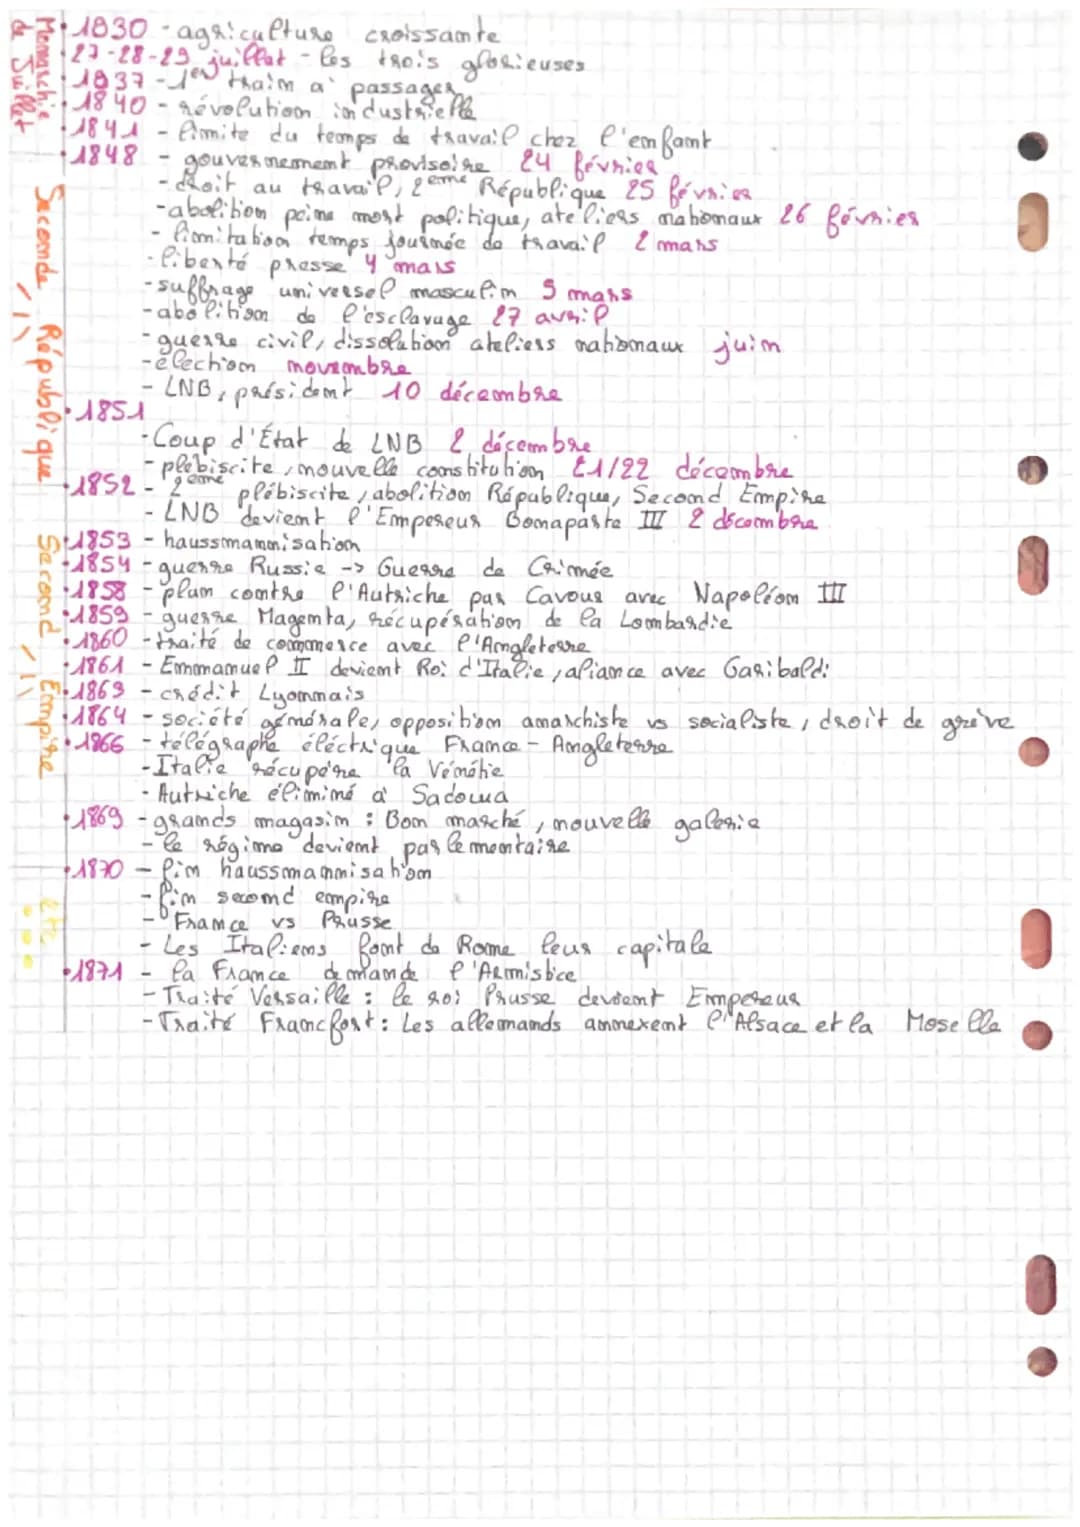 Monarchie de Juillet
• 1830 - agriculture croissante
• 27-28-29 juillet - les trois glorieuses
• 1837 - 1er train à passager
• 1840 - révolution industrielle
• 1841 - limite du temps de travail chez l'enfant
• 1848 - gouvernement provisoire 24 février
- droit au travail, 2ème République 25 février
- abolition peine mort politique, ateliers nationaux 26 février
- limitation temps journée de travail 2 mars
- liberté presse 4 mars
- suffrage universel masculin 5 mars
- abolition de l'esclavage 27 avril
- guerre civil, dissolution ateliers nationaux juin
- élection novembre
- LNB, président 10 décembre
Seconde République
• 1851
- Coup d'État de LNB 2 décembre
- plébiscite, nouvelle constitution 21/22 décembre
• 1852 - 2ème plébiscite, abolition République, Second Empire
- LNB devient l'Empereur Bonaparte III 2 décembre
Second Empire
• 1853 - haussmannisation
• 1854 - guerre Russie -> Guerre de Crimée
• 1858 - plan contre l'Autriche par Cavour avec Napoléon III
• 1859 - guerre Magenta, récupération de la Lombardie
• 1860 - traité de commerce avec l'Angleterre
• 1861 - Emmanuel II devient Roi d'Italie, aliance avec Garibaldi
• 1863 - crédit Lyonnais
• 1864 - société générale, opposition anarchiste vs socialiste, droit de grève
• 1866 - télégraphe éléctrique France - Angleterre
- Italie récupère la Vénétie
- Autriche éliminé à Sadowa
• 1869 - grands magasin : Bon marché, nouvelle galerie
- le régime devient parlementaire
• 1870 - fin haussmannisation
- fin second empire
- France vs Prusse
- Les Italiens font de Rome leur capitale
etc...
• 1871 - la France demande l'Armistice
- Traité Versaille : le roi Prusse devient Empereur
- Traité Francfort : Les allemands annexent l'Alsace et la Moselle